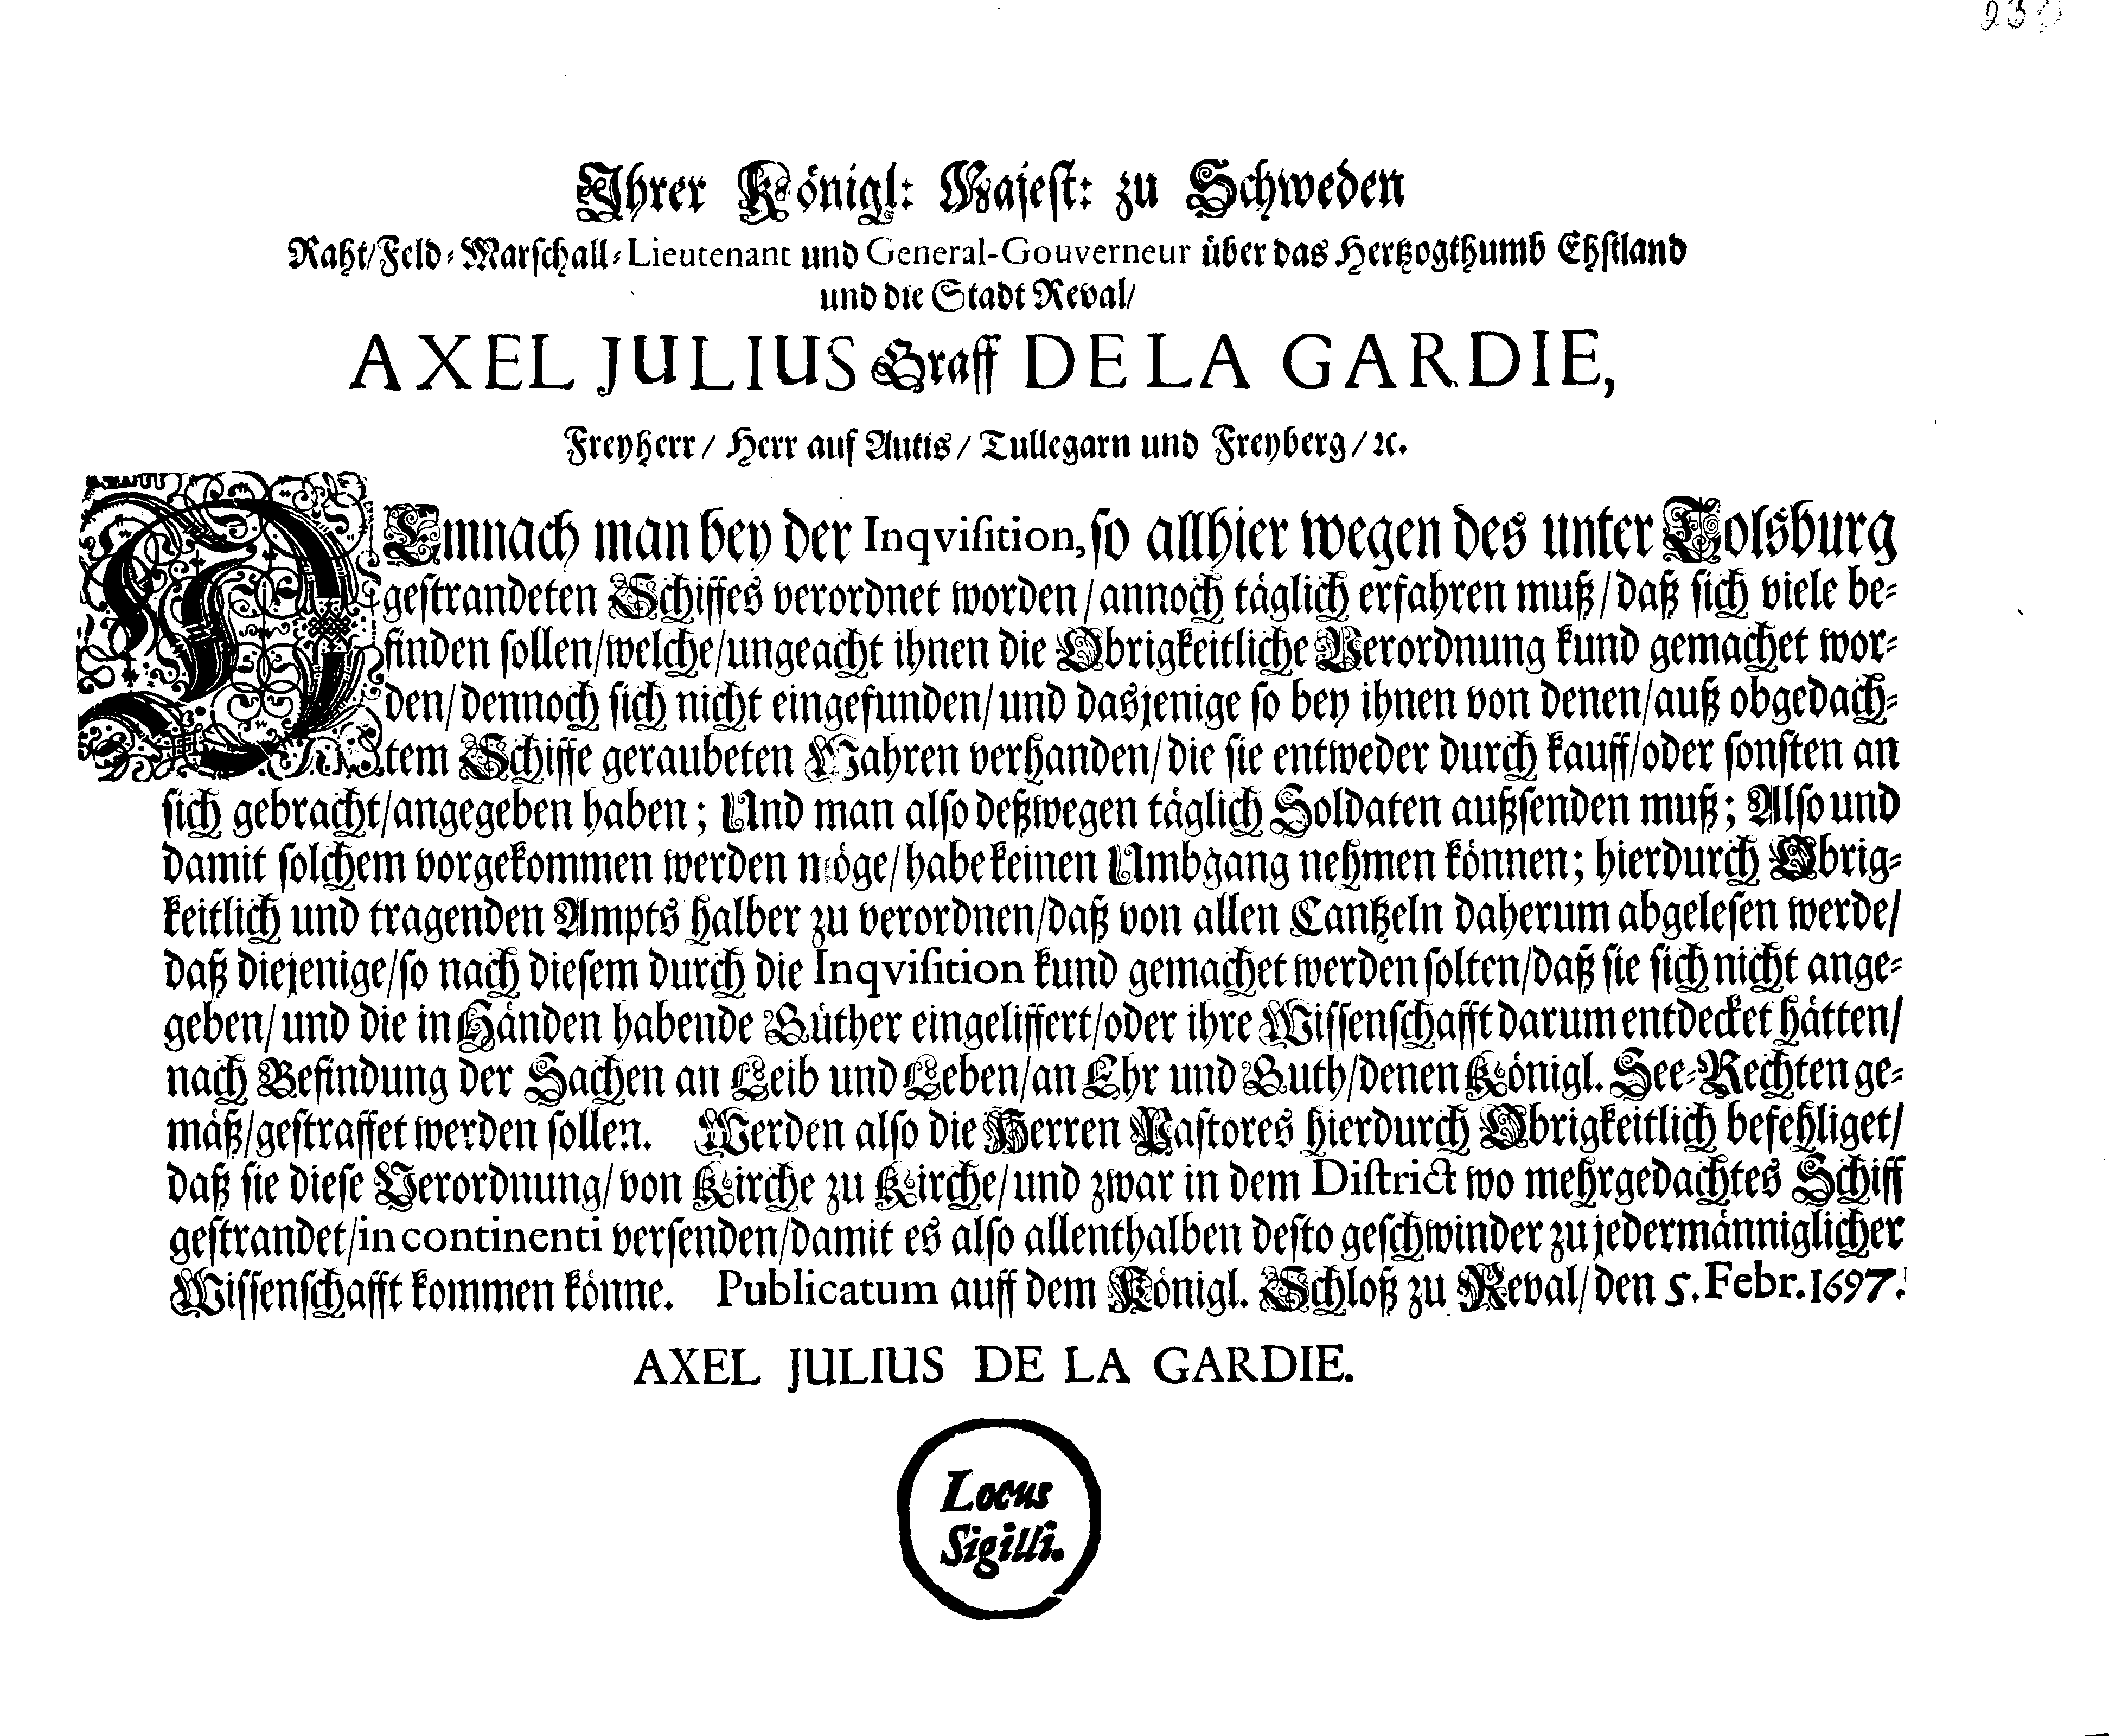 Ihrer Königl: Majest: zu Schweden
Raht/Feld-Marschall-Lieutenant und General-Gouverneur über das Hertzogthumb Ehstland
und die Stadt Reval/
AXEL JULIUS Graff DE LA GARDIE,
Freyherr / Herr auf Autis / Tullegarn und Freyberg / ꝛc.
DEmnach man bey der Inqvisition, so allhier wegen des unter Tolsburg
gestrandeten Schiffes verordnet worden/annoch täglich erfahren muß/daß sich viele be-
finden sollen/welche/ungeacht ihnen die Obrigkeitliche Verordnung kund gemachet wor-
den/dennoch sich nicht eingefunden/und dasjenige so bey ihnen von denen/auß obgedach-
tem Schiffe geraubeten Wahren verhanden/die sie entweder durch kauff/oder sonsten an
sich gebracht/angegeben haben; Und man also deßwegen täglich Soldaten außsenden muß; Also und
damit solchem vorgekommen werden möge/habe keinen Umbgang nehmen können; hierdurch Obrig-
keitlich und tragenden Ampts halber zu verordnen/daß von allen Cantzeln daherum abgelesen werde/
daß diejenige/so nach diesem durch die Inqvisition kund gemachet werden solten/daß sie sich nicht ange-
geben/und die in Händen habende Güther eingeliffert/oder ihre Wissenschafft darum entdecket hätten/
nach Befindung der Sachen an Leib und Leben/an Ehr und Guth/denen Königl. See-Rechten ge-
mäß/gestraffet werden sollen. Werden also die Herren Pastores hierdurch Obrigkeitlich befehliget/
daß sie diese Verordnung/von Kirche zu Kirche/und zwar in dem District wo mehrgedachtes Schiff
gestrandet/in continenti versenden/damit es also allenthalben desto geschwinder zu jedermänniglicher
Wissenschafft kommen könne. Publicatum auff dem Königl. Schloß zu Reval/den 5. Febr. 1697.
AXEL JULIUS DE LA GARDIE.
Locus
Sigilli.